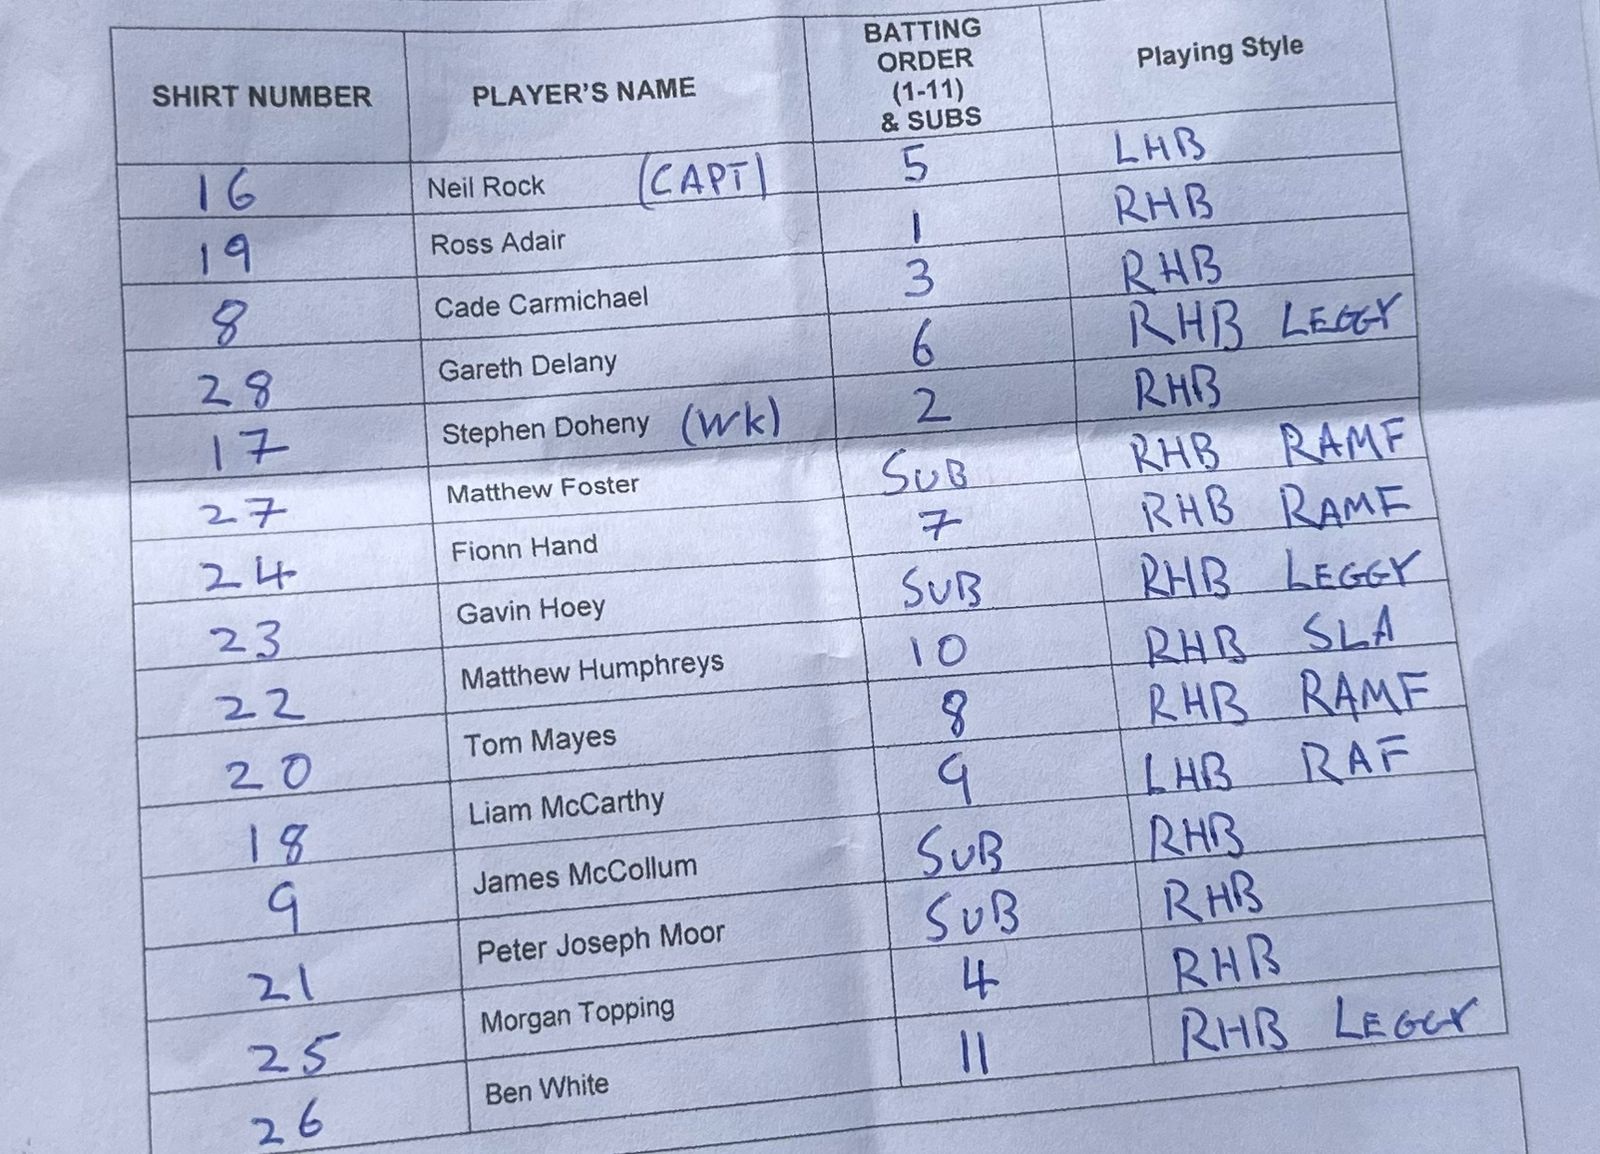 SHIRT NUMBER PLAYER'S NAME BATTING ORDER (1-11) & SUBS Playing Style
16 Neil Rock (CAPT) 5 LHB
19 Ross Adair 1 RHB
8 Cade Carmichael 3 RHB
28 Gareth Delany 6 RHB LEGGY
17 Stephen Doheny (WK) 2 RHB
27 Matthew Foster SUB RHB RAMF
24 Fionn Hand 7 RHB RAMF
23 Gavin Hoey SUB RHB LEGGY
22 Matthew Humphreys 10 RHB SLA
20 Tom Mayes 8 RHB RAMF
18 Liam McCarthy 9 LHB RAF
9 James McCollum SUB RHB
21 Peter Joseph Moor SUB RHB
25 Morgan Topping 4 RHB
26 Ben White 11 RHB LEGGY